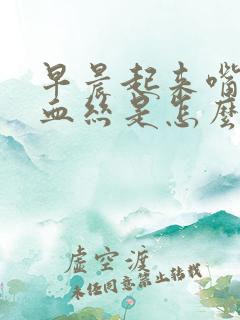 早晨起来嘴
血丝是怎么
虚空渡
未经同意禁止转载